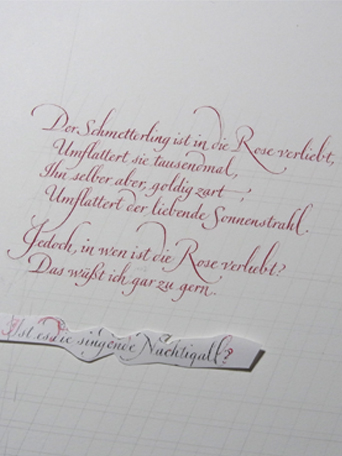 Der Schmetterling ist in die Rose verliebt,
Umflattert sie tausendmal,
Ihn selber aber, goldig zart,
Umflattert der liebende Sonnenstrahl.
Jedoch, in wen ist die Rose verliebt?
Das wüßt ich gar zu gern.
Ist es die singende Nachtigall?